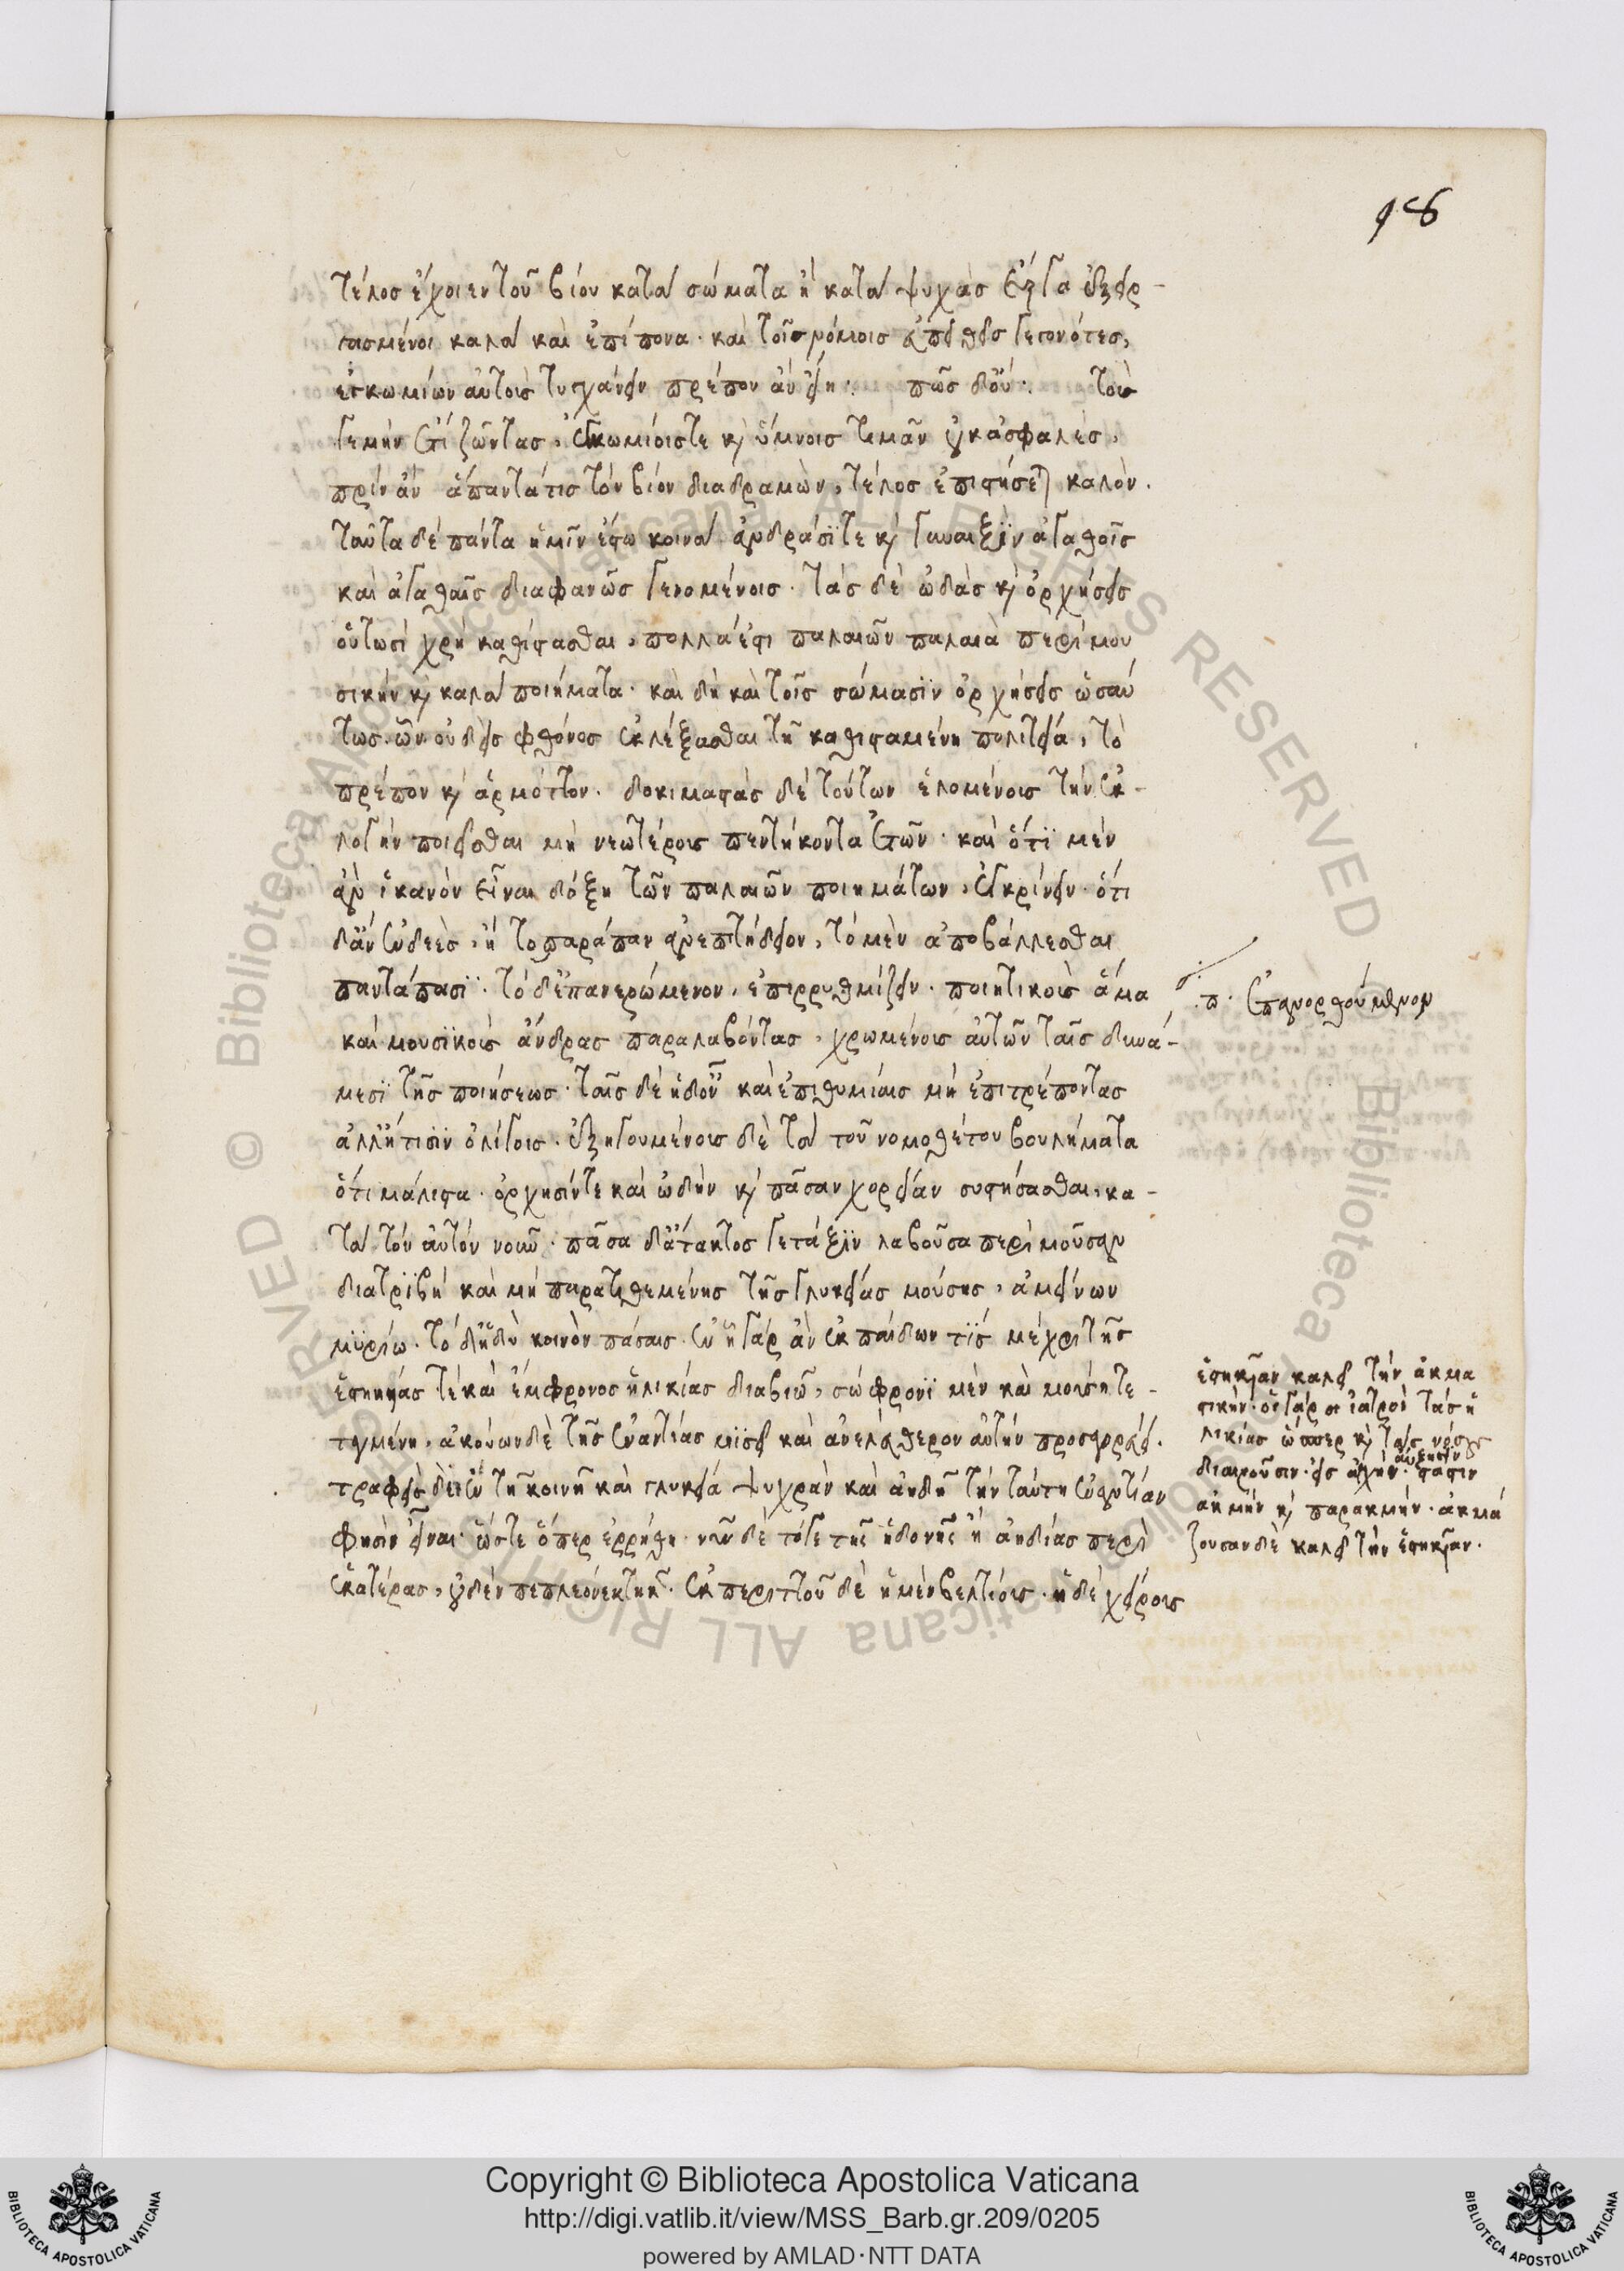 98
τέλος ἔχοιεν τοῦ βίου κατὰ σώματα ἢ κατὰ ψυχὰς ἔργα ἐξειρ-
γασμένοι καλὰ καὶ ἐπίπονα· καὶ τοῖς νόμοις εὐπειθεῖς γεγονότες,
ἐγκωμίων αὐτοὺς τυγχάνειν πρέπον ἂν εἴη: πῶς δοὔ: τοὺς
γεμὴν ἔτι ζῶντας, ἐγκωμίοις τε καὶ ὕμνοις τιμᾶν οὐκ ἀσφαλὲς,
πρὶν ἂν ἅπαντά τις τὸν βίον διαδραμὼν, τέλος ἐπιστήσεται καλόν.
ταῦτα δὲ πάντα ἡμῖν ἔστω κοινὰ ἀνδράσι τε καὶ γυναιξὶν ἀγαθοῖς
καὶ ἀγαθαῖς διαφανῶς γενομένοις. τὰς δὲ ᾠδὰς καὶ ὀρχήσεις
οὑτωσὶ χρὴ καθίστασθαι, πολλά ἐστι παλαιῶν παλαιὰ περὶ μου
σικὴν καὶ καλὰ ποιήματα· καὶ δὴ καὶ τοῖς σώμασιν ὀρχήσεις ὡσαύ
τως· ὧν οὐδεὶς φθόνος ἐκλέξασθαι τῇ καθισταμένῃ πολιτείᾳ, τὸ
πρέπον καὶ ἁρμόττον. δοκιμαστὰς δὲ τούτων ἑλομένους τὴν ἐκ-
λογὴν ποιεῖσθαι μὴ νεωτέρους πεντήκοντα ἐτῶν· καὶ ὅτι μὲν
ἂν ἱκανὸν εἶναι δόξῃ τῶν παλαιῶν ποιημάτων, ἐγκρίνειν· ὅτι
δἂν ἐνδεὲς, ἢ τὸ παράπαν ἀνεπιτήδειον, τὸ μὲν ἀποβάλλεσθαι
παντάπασι· τὸ δἐπανερώμενον, ἐπιρρυθμίζειν· ποιητικοὺς ἅμα
καὶ μουσικοὺς ἄνδρας παραλαβόντας, χρωμένους αὐτῶν ταῖς δυνά-
μεσι τῆς ποιήσεως· ταῖς δὲ ἡδοναῖς καὶ ἐπιθυμίαις μὴ ἐπιτρέποντας
ἀλλἤτισιν ὀλίγοις· ἐξηγουμένους δὲ τὰ τοῦ νομοθέτου βουλήματα
ὅτι μάλιστα· ὄρχησίν τε καὶ ᾠδὴν καὶ πᾶσαν χορείαν συστήσασθαι, κα-
τὰ τὸν αὐτὸν νοῦν· πᾶσα δἄτακτός γε τάξιν λαβοῦσα περὶ μοῦσαν
διατριβὴ καὶ μὴ παρατιθεμένης τῆς γλυκείας μούσης, ἀμείνων
μυρίῳ. τὸ δἡδὺ κοινὸν πάσαις. ἐν ᾗ γὰρ ἂν ἐκ παίδων τὶς μέχρι τῆς
ἑστηκυίας τὲ καὶ ἔμφρονος ἡλικίας διαβιῷ, σώφρονι μὲν καὶ μούσῃ τε-
ταγμένῃ, ἀκούων δὲ τῆς ἐναντίας μισεῖ καὶ ἀνελεύθερον αὐτὴν προσαγορεύει.
τραφεὶς δὲ ἐν τῇ κοινῇ καὶ γλυκείᾳ ψυχρὰν καὶ ἀηδῆ τὴν ταύτῃ ἐναντίαν
φησὶν εἶναι· ὥστε ὅπερ ἐρρήθη· νῦν δὲ τό γε τῆς ἡδονῆς ἢ ἀηδίας περὶ
ἑκατέρας, οὐδὲν πεπλεονέκτηκεν. ἐκ περιττοῦ δὲ ἡ μὲν βελτίους· ἡ δὲ χείρους
.π. ἐπανορθούμενον
ἑστηκυῖαν καλεῖ τὴν ἀκμα
στικήν· οἱ γάρ οἱ ἰατροὶ τὰς ἡ
λικίας ὥσπερ καὶ τὰς νόσους
διαιροῦσιν· εἰς ἀρχήν· αὔξησιν· στάσιν
ἀκμὴν καὶ παρακμήν· ἀκμά
ζουσαν δὲ καλεῖ τὴν ἑστηκυῖαν.
© Biblioteca Apostolica Vaticana ALL RIGHTS RESERVED
Copyright © Biblioteca Apostolica Vaticana
http://digi.vatlib.it/view/MSS_Barb.gr.209/0205
powered by AMLAD·NTT DATA
BIBLIOTECA APOSTOLICA VATICANA
BIBLIOTECA APOSTOLICA VATICANA